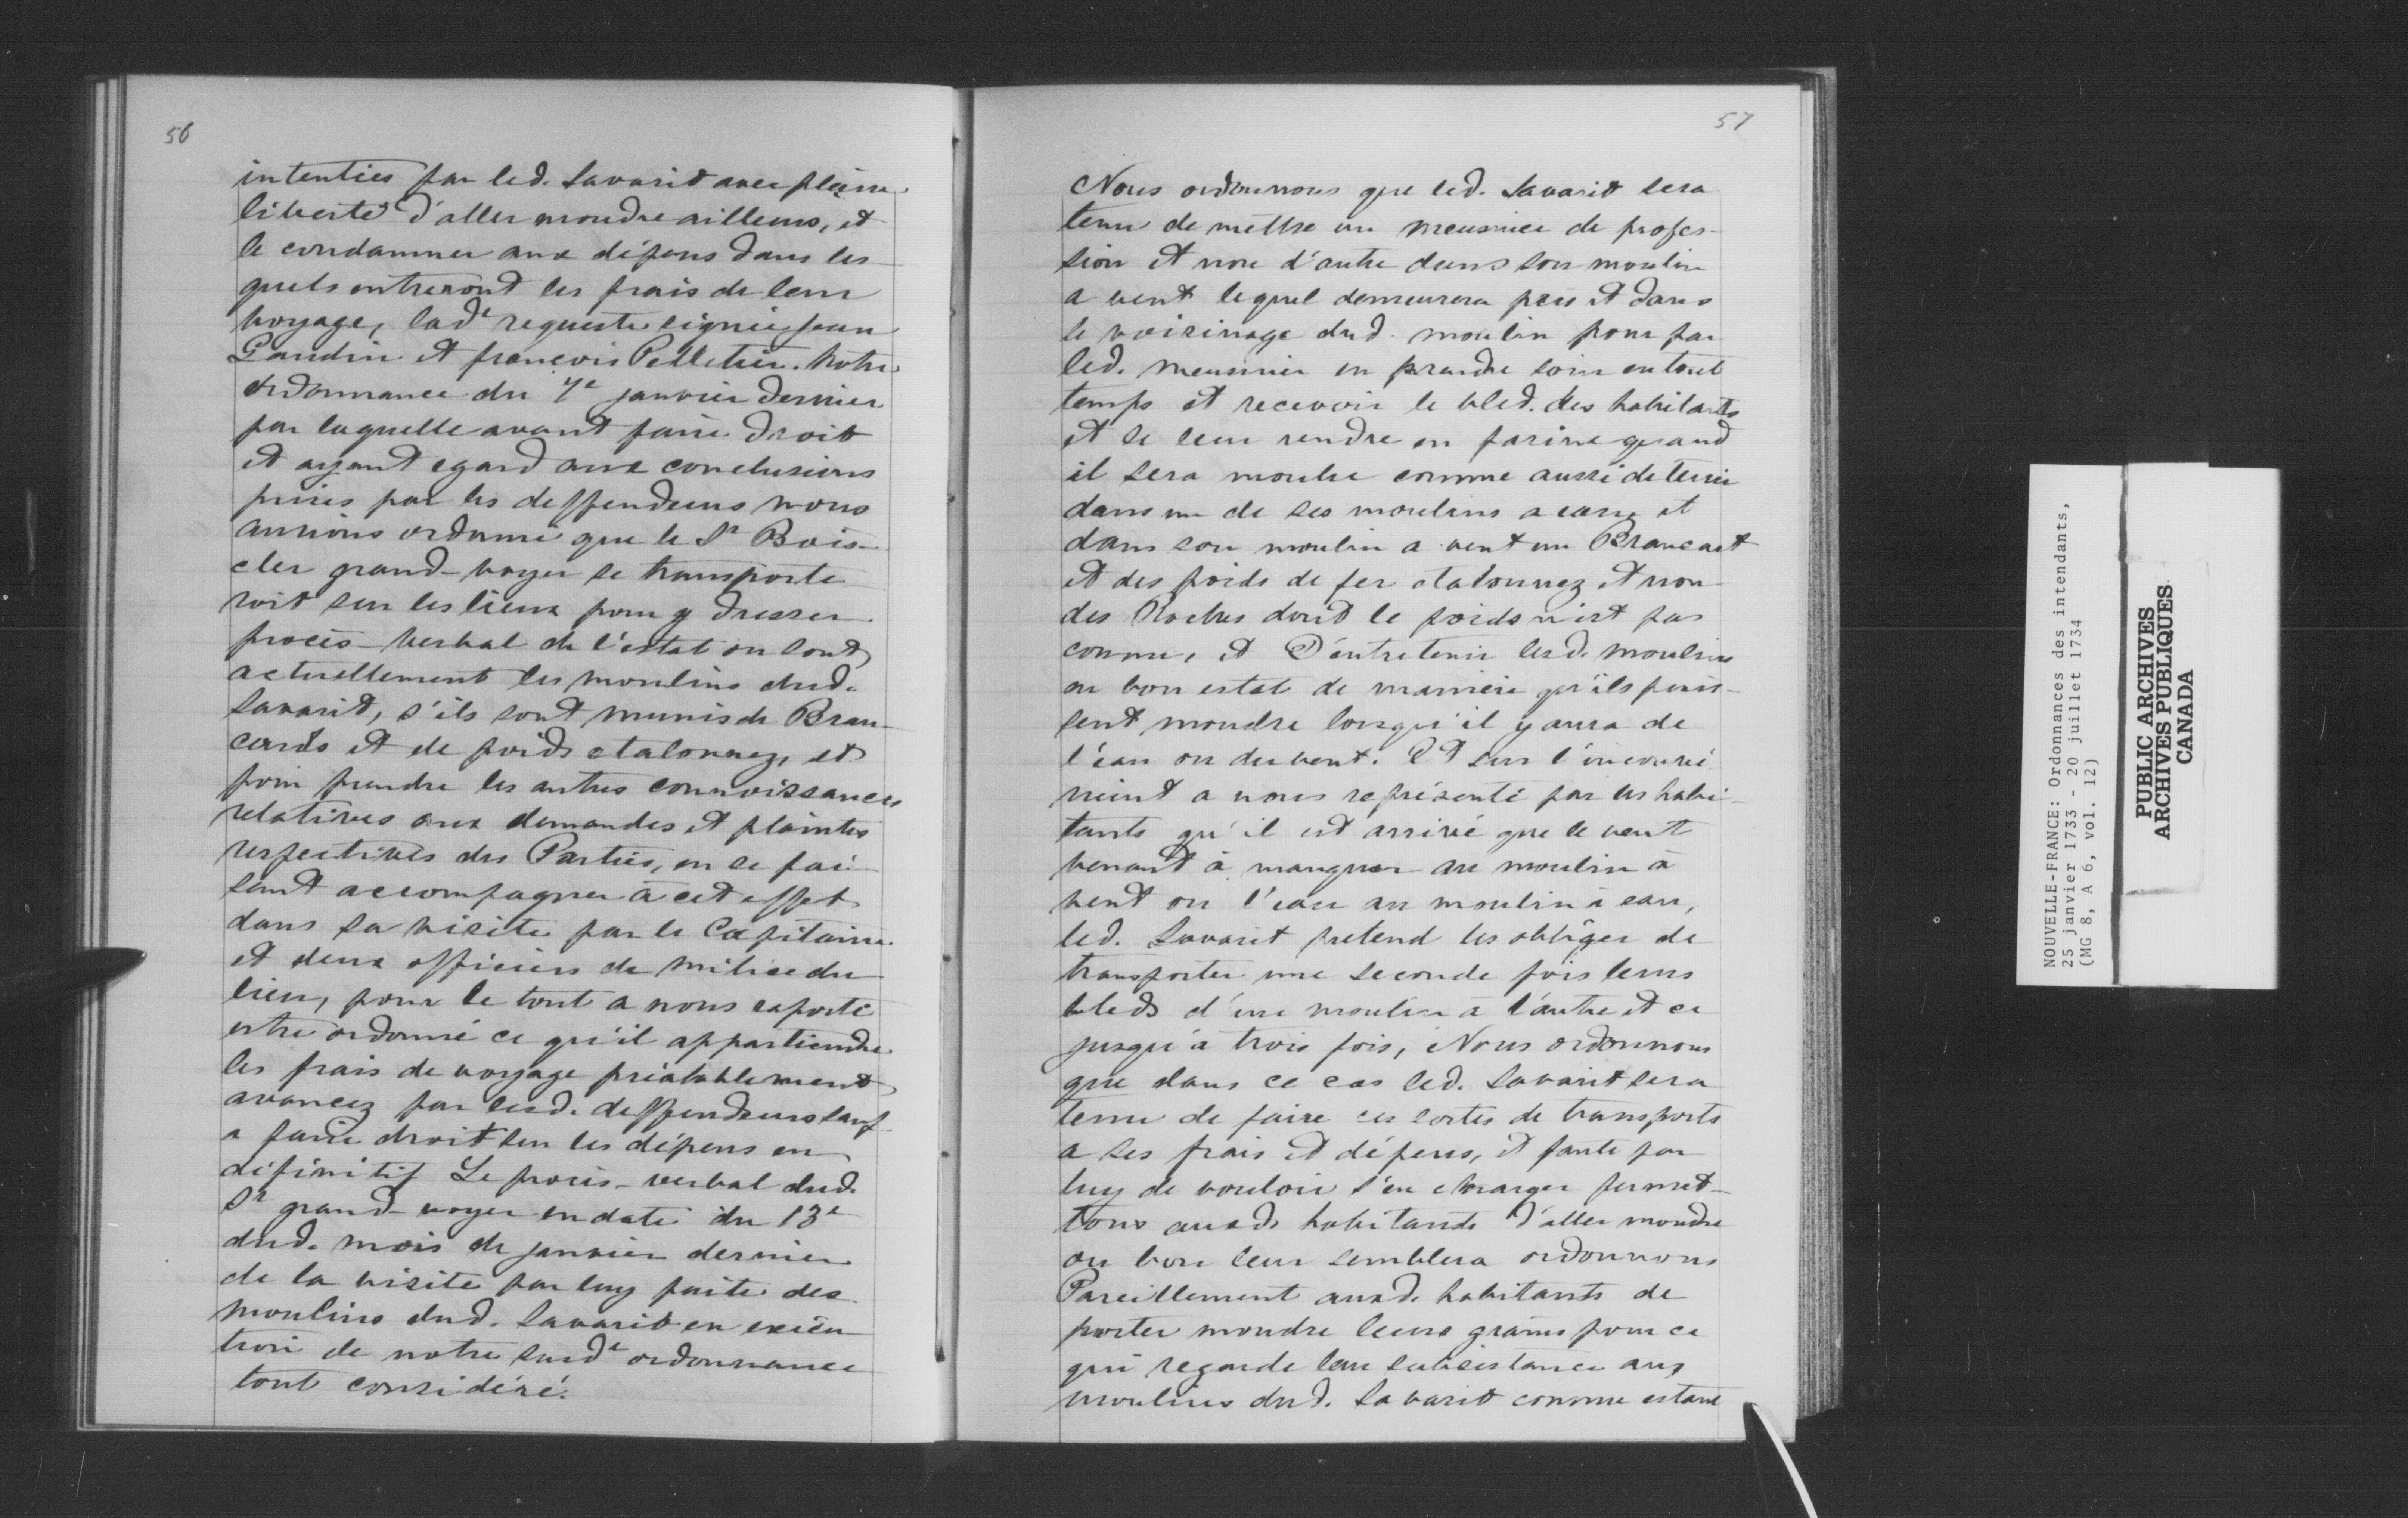 56
intentées par led. Savarit avec pleine
liberté d'aller moudre ailleurs, et
le condamner aux dépens dans les
quels entreront les frais de leur
voyage, lad.e requeste signée Jean
Gaudin et françois Pelletier. Notre
ordonnance du 7e janvier dernier
par laquelle avant faire droit
et ayant egard aux conclusions
prises par les deffendeurs nous
aurions ordonné que le Sr Bois-
cler grand-voyer se transporte
roit sur les lieux pour y dresser
procès-verbal de l'estat ou sont
actuellement les moulins dud.
Savarit, s'ils sont munis de Bran-
cards et de poids etalonnez, et
pour prendre les autres connoissances
relatives aux demandes et plaintes
respectives des Parties, en se fai-
sant accompagner à cet effet
dans sa visite par le Capitaine
et deux officiers de milice du
lieu, pour le tout a nous raporté
estre ordonné ce qu'il appartiendra
les frais de voyage préalablement
avancez par lesd. deffendeurs sauf
a faire droit sur les dépens en
définitif Le procès-verbal dud.
Sr grand-voyer en date du 13e
dud. mois de janvier dernier
de la visite par luy faite des
moulins dud. Savarit en exécu
tion de notre susd.e ordonnance
tout considéré.
57
Nous ordonnons que led. Savarit sera
tenu de mettre un meusnier de profes-
sion et non d'autre dans son moulin
a vent lequel demeurera près et dans
le voisinage dud. moulin pour par
led. meusnier en prendre soin en tout
temps et recevoir le bled. des habitants
et le leur rendre en farine quand
il sera moulu comme aussi de tenir
dans un de ses moulins a eau et
dans son moulin a vent un Brancart
et des poids de fer etalonnez et non
des Roches dont le poids n'est pas
connu, et D'entretenir lesd. moulins
en bon estat de manière qu'ils puis-
sent moudre lorsqu'il y aura de
l'eau ou du vent. Et sur l'inconvé
nient a nous représenté par les habi-
tants qu'il est arrivé que le vent
venant à manquer au moulin à
vent ou l'eau au moulin à eau,
led. Savarit pretend les obliger de
transporter une seconde fois leurs
bleds d'un moulin à l'autre et ce
jusqu'à trois fois, Nous ordonnons
que dans ce cas led. Savarit sera
tenu de faire ces sortes de transports
a ses frais et dépens, et faute par
luy de vouloir s'en charger permet-
tons auxd. habitants d'aller moudre
ou bon leur semblera ordonnons
Pareillement auxd. habitants de
porter moudre leurs grains pour ce
qui regarde leur subsistance aux
moulins dud. Savarit comme estant
NOUVELLE-FRANCE: Ordonnances des intendants,
25 janvier 1733 - 20 juillet 1734
(MG 8, A 6, vol. 12)
PUBLIC ARCHIVES
ARCHIVES PUBLIQUES
CANADA